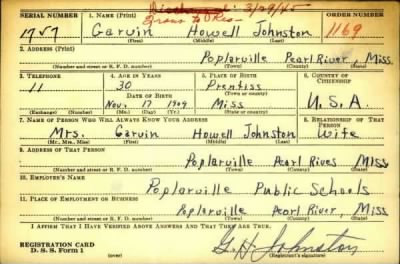 Discharged: 3/29/45
SERIAL NUMBER 1. NAME (Print) ORDER NUMBER
1757 Garvin Howell Johnston 1169
(First) (Middle) (Last)
2. ADDRESS (Print)
Poplarville Pearl River, Miss.
(Number and street or R. F. D. number) (Town) (County) (State)
3. TELEPHONE 4. AGE IN YEARS 5. PLACE OF BIRTH 6. COUNTRY OF CITIZENSHIP
11 30 Prentiss
DATE OF BIRTH (Town or county)
Nov. 17 1909 Miss U.S.A.
(Exchange) (No.) (Mo.) (Day) (Yr.) (State or country)
7. NAME OF PERSON WHO WILL ALWAYS KNOW YOUR ADDRESS 8. RELATIONSHIP OF THAT PERSON
Mrs. Garvin Howell Johnston Wife
(Mr., Mrs., Miss) (First) (Middle) (Last)
9. ADDRESS OF THAT PERSON
Poplarville Pearl River Miss
(Number and street or R. F. D. number) (Town) (County) (State)
10. EMPLOYER'S NAME
Poplarville Public Schools
11. PLACE OF EMPLOYMENT OR BUSINESS
Poplarville Pearl River, Miss
(Number and street or R. F. D. number) (Town) (County) (State)
I AFFIRM THAT I HAVE VERIFIED ABOVE ANSWERS AND THAT THEY ARE TRUE.
G H Johnston
REGISTRATION CARD
D. S. S. Form 1 (over) (Registrant's signature)